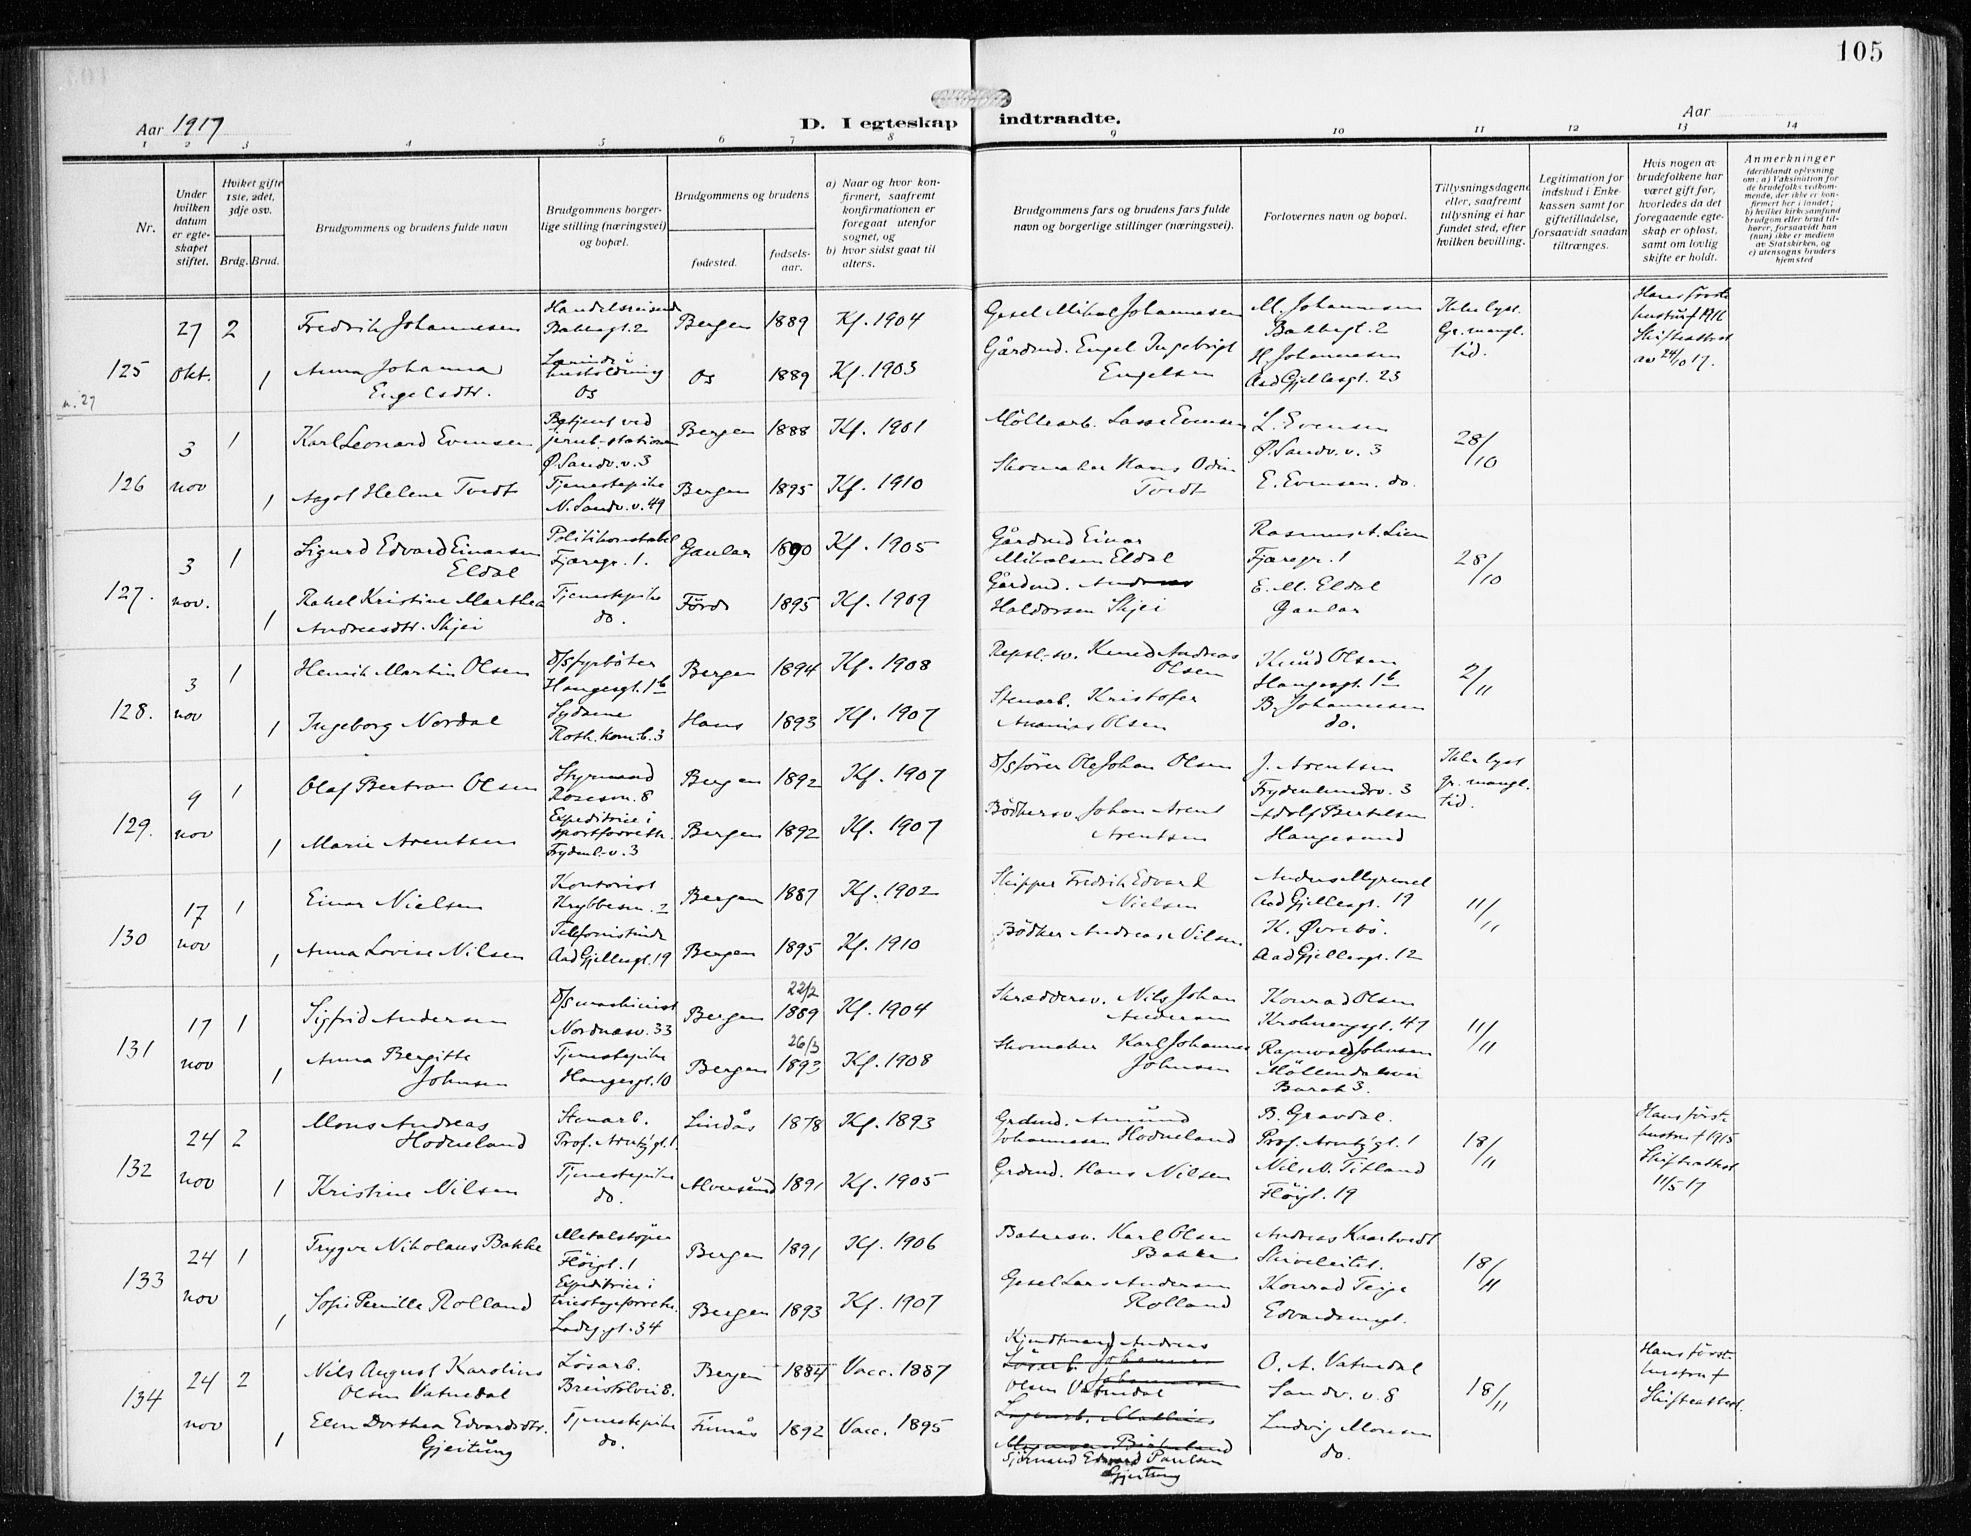 105
Aar 1917
D. I egteskap indtraadte.
Aar
1 2 3 4 5 6 7 8 9 10 11 12 13 14
Nr.
Under hvilken datum er egteskapet stiftet.
Hvilket gifte 1ste, 2det, 3dje osv.
Brdg. Brud.
Brudgommens og brudens fulde navn
Brudgommens borgerlige stilling (næringsvei) og bopæl.
Brudgommens og brudens
fødested.
fødselsaar.
a) Naar og hvor konfirmert, saafremt konfirmationen er foregaat utenfor sognet, og
b) hvor sidst gaat til alters.
Brudgommens fars og brudens fars fulde navn og borgerlige stillinger (næringsvei).
Forlovernes navn og bopæl.
Tillysningsdagene eller, saafremt tillysning ei har fundet sted, efter hvilken bevilling.
Legitimation for indskud i Enkekassen samt for giftetilladelse, forsaavidt saadan tiltrænges.
Hvis nogen av brudefolkene har været gift før, hvorledes da det foregaaende egteskap er opløst, samt om lovlig skifte er holdt.
Anmerkninger
(deriblandt oplysning om: a) Vaksination for de brudefolks vedkommende, der ikke er konfirmert her i landet; b) hvilket kirkesamfund brudgom eller brud tilhører, forsaavidt han (hun) ikke er medlem av Statskirken, og c) utensogns bruders hjemsted
125
27 Okt.
2
Fredrik Johannesen
Handelsreisende
Bakkegt. 2
Bergen 1889 Kf. 1904
Gesel Mikal Johannesen
M. Johannesen
Bakkegt. 2
Ikke lyst
Gr. mangl.
tid.
Hans første
hustru f 1916
Skifteattest
av 24/10 17.
1
Anna Johanna
Engelsdtr.
husholdning
Os
Os 1889 Kf. 1903
Gårdmd. Engel Ingebrigt
Engelsen
H. Johannesen
Aad Gjellesgt. 23
126
3 nov
1
Karl Leonard Evensen
Betjent ved
jernb-stationen
Ø. Sandv. v. 3
Bergen 1888 Kf. 1901
Möllearb. Lasse Evensen
L. Evensen
Ø. Sandv. v. 3
28/10
1
Aagot Helene Tvedt
Tjenestepike
N. Sandv. v. 49
Bergen 1895 Kf. 1910
Skomaker Hans Odin
Tvedt
E. Evensen. do.
127.
3 nov.
1
Sigurd Edvard Einarsen
Eldal
Politikonstabel
Fjæregr. 1.
Gaular 1890 Kf. 1905
Gårdmd Einar
Mikalsen Eldal
Rasmus A. Lien
Fjæregr. 1
28/10
1
Rakel Kristine Marthea
Andreasdtr. Skjei
Tjenestepike
do.
Förde 1895 Kf. 1909
Gårdmd. Andreas
Haldorsen Skjei
E. M. Eldal
Gaular
128.
3 nov
1
Henrik Martin Olsen
D/S fyrböter
Haugesgt. 1b
Bergen 1894 Kf. 1908
Repsl.-sv. Knud Andreas
Olsen
Knud Olsen
Haugesgt. 1b
2/11
1
Ingeborg Nordal
Sydame
Roth. kom. b. 3
Haus 1893 Kf. 1907
Stenarb. Kristofer
Ananias Olsen
B. Johannesen
do.
129.
9 nov
1
Olaf Bertran Olsen
Styrmand
Rosesm. 8
Bergen 1892 Kf. 1907
D/S förer Ole Johan Olsen
J. Arentsen
Frydenlundsv. 3
Ikke lyst
gr. mangl.
tid.
1
Marie Arentsen
Expeditrice i
sportforretn.
Frydenl.-v. 3
Bergen 1892 Kf. 1907
Bödkersv. Johan Arent
Arentsen
Adolf Bertelsen
Haugesund
130
17 nov
1
Einar Nielsen
Kontorist
Krybbesm. 2
Bergen 1887 Kf. 1902
Skipper Fredrik Edvard
Nielsen
Anders Myrmel
Aad Gjellesgt. 19
11/11
1
Anna Lovise Nilsen
Telefonistinde
Aad Gjellesgt. 19
Bergen 1895 Kf. 1910
Bödker Andreas Nilsen
K. Øvrebö.
Aad Gjellesgt. 12
131
17 nov
1
Sigfrid Andersen
D/S maskinist
Nordnesv. 33
Bergen 22/2 1889 Kf. 1904
Skræddersv. Nils Johan
Andersen
Konrad Olsen
Krohnengsgt. 47
11/11
1
Anna Bergitte
Johnsen
Tjenestepike
Haugesgt. 10
Bergen 26/3 1893 Kf. 1908
Skomaker Karl Johannes
Johnsen
Ragnvald Johnsen
Möllendalsvei
Barak 3.
132
24 nov
2
Mons Andreas
Hodneland
Stenarb.
Prof. Arntzgt. 1.
Lindås 1878 Kf. 1893
Grdmd. Amund
Johannesen Hodneland
B. Gravdal.
Prof. Arntzgt. 1
18/11
Hans först.
hustru f 1915
Skifteattest
11/5 17
1
Kristine Nilsen
Tjenestepike
do.
1891 Kf. 1905
Grdmd. Hans Nilsen
Nils N. Titland
Flöigt. 19
133
24 nov
1
Trygve Nikolaus Bakke
Metalstöper
Flöigt. 1
Bergen 1891 Kf. 1906
Bakersv. Karl Olsen
Bakke
Andreas Kaartvedt
Skivebakt.
18/11
1
Sofie Pernille Rolland
Expeditrice i
Ladegt. 34
Bergen 1893 Kf. 1907
Gesel Lars Andersen
Rolland
Konrad Teige
Edvardsensgt.
134
24 nov
2
Nils August Karolius
Olsen Vatnedal
Lösarb.
Breistölvei 8.
Bergen 1884 Vacc. 1887
Kjendtmand Andreas
Lösarb. Johannes
Johannesen
Olsen Vatnedal
O. A. Vatnedal
Sandv. v. 8
18/11
Hans först.
hustru f
Skifteattest.
1
Elen Dorthea Edvardsdtr.
Gjeitung
Tjenestepike
do.
Finnås 1892 Vacc. 1895
Sjömand Edvard Paulsen
Gjeitung
Ludvig Monsen
do.